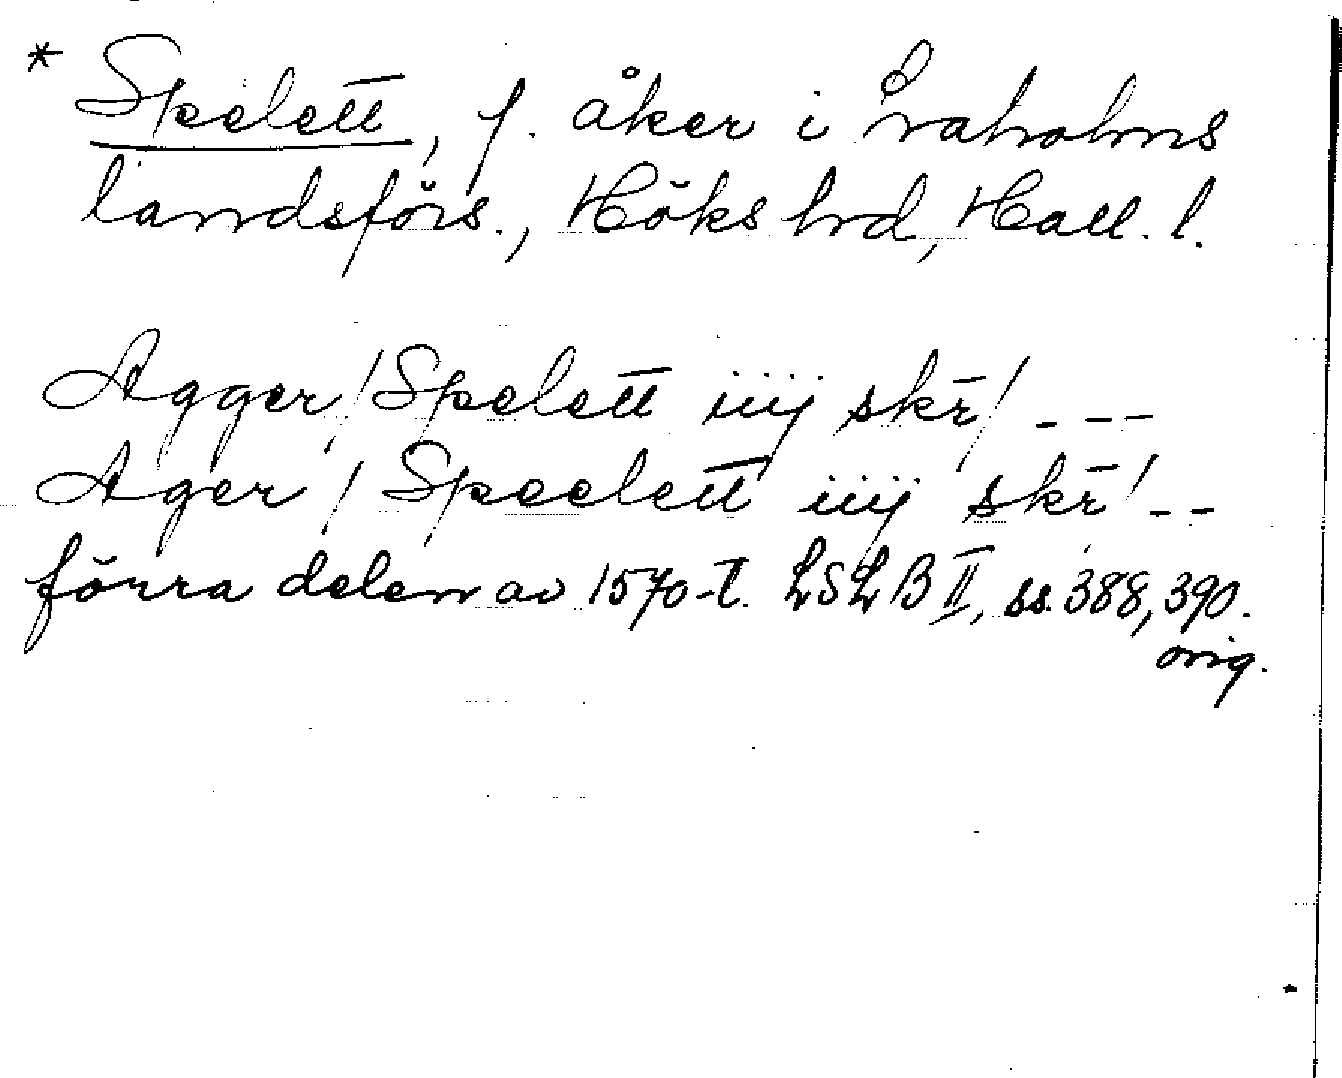 * Spelett, f. åker i Åraholms
landsförs., Höks hrd, Hall. l.
Agger / Spelett iiij skr̄ / - - -
Ager / Speelett iiij skr̄ / - -
förra delen av 1570-t. LSLB II, ss. 388, 390.
orig.